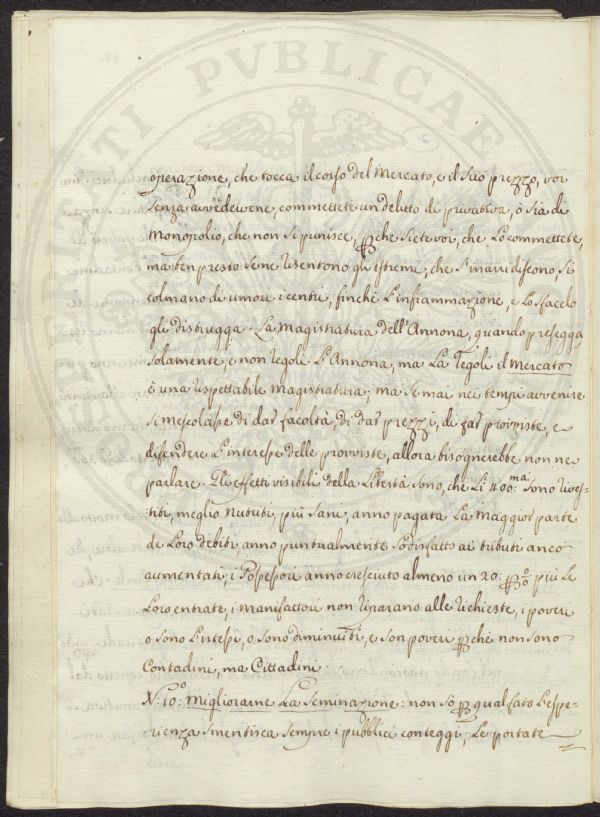 operazione, che tocca il corso del Mercato, e il suo prezzo, voi
senza avvedervene, commettete un delitto di privativa, ò sia di
Monopolio, che non si punisce, che siete voi, che Lo commettete,
ma ben presto se ne risentono gli estremi, che s'inaridiscono, si
colmano di umore i centri, finche L'infiammazione, e Lo sfacelo
gli distrugga. La Magistratura dell'Annona, quando presegga
solamente, e non regoli L'Annona, ma La regoli il Mercato
è una rispettabile Magistratura; ma se mai nei tempi avvenire
si mescolasse di dar facoltà, di dar prezzi, di far provviste, e
difendere L'interesse delle provviste, allora bisognerebbe non ne
parlare. Gli effetti visibili della Libertà sono, che Li 400:ma sono vives-
titi, meglio nutriti, più sani, anno pagata La maggior parte
de Loro debiti, anno puntualmente sodisfatto ai tributi anco
aumentati, i Possessori anno cresciuto almeno un 20: più Le
Loro entrate, i Manifattori non riparano alle richieste, i poveri
o sono L'istessi, o sono diminuiti, e son poveri che non sono
Contadini, ma Cittadini.
N.° 10.° Migliorarne La Seminazione: non sò qual fato L'espe-
rienza smentisca sempre i pubblici conteggi; Le portate
PVBLICAE